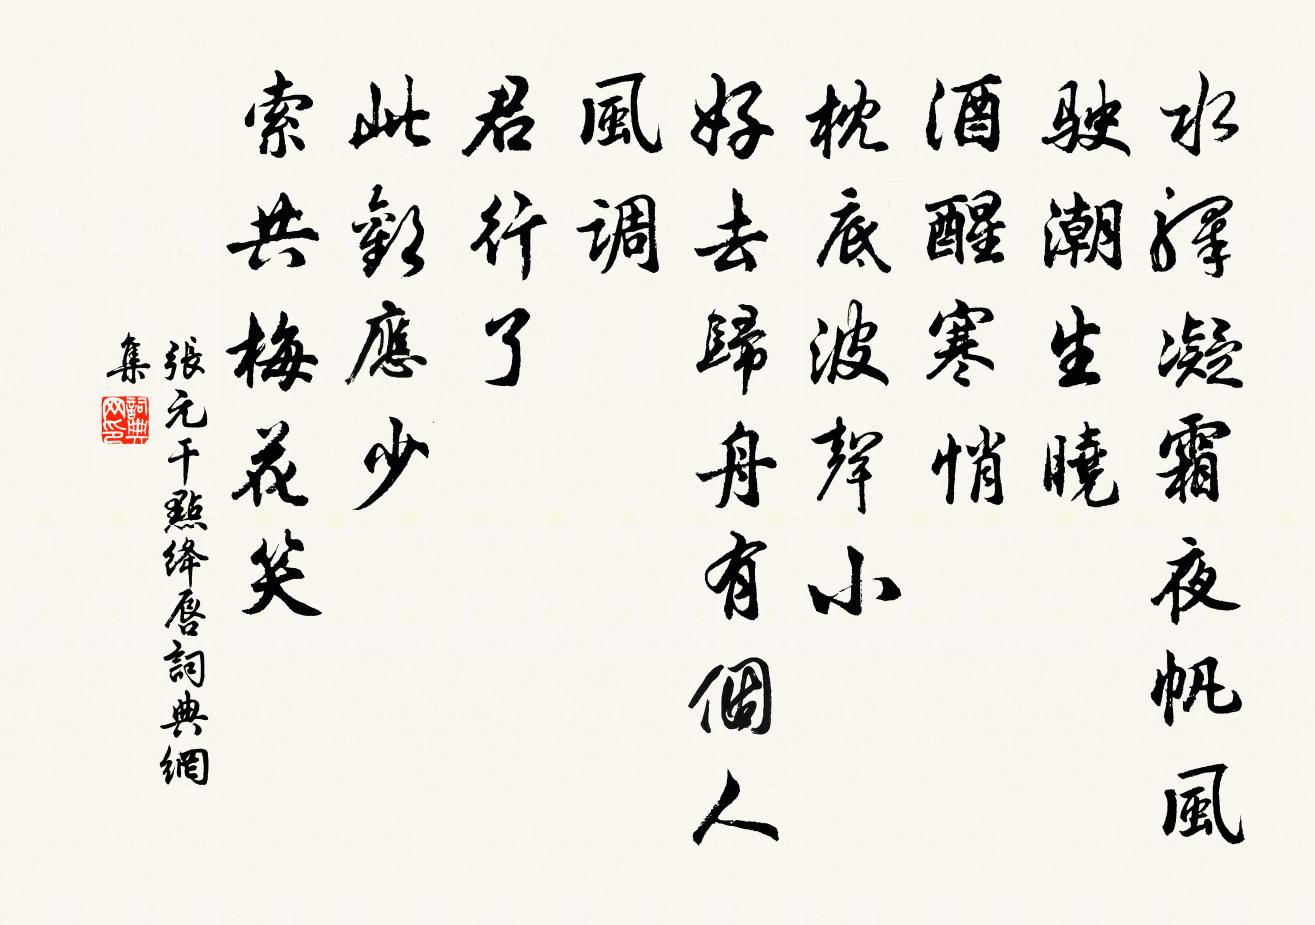 水驛凝霜夜帆風
駛潮生曉
酒醒寒悄
枕底波聲小
好去歸舟有個人
風調
君行了
此歡應少
索共梅花笑
張元干點絳唇詞典網
集
詞典
网印